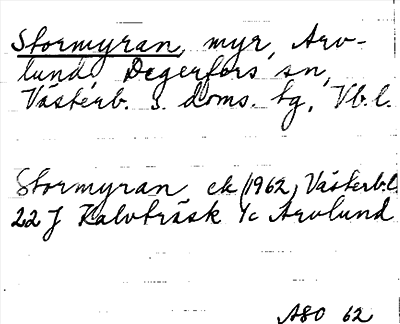 Stormyran, myr, Arv-
lund, Degerfors sn,
Västerb. s. doms. tg, Vb. l.
Stormyran ek (1962) Västerb.l.
22 J Kalvträsk 1c Arvlund
ASO 62